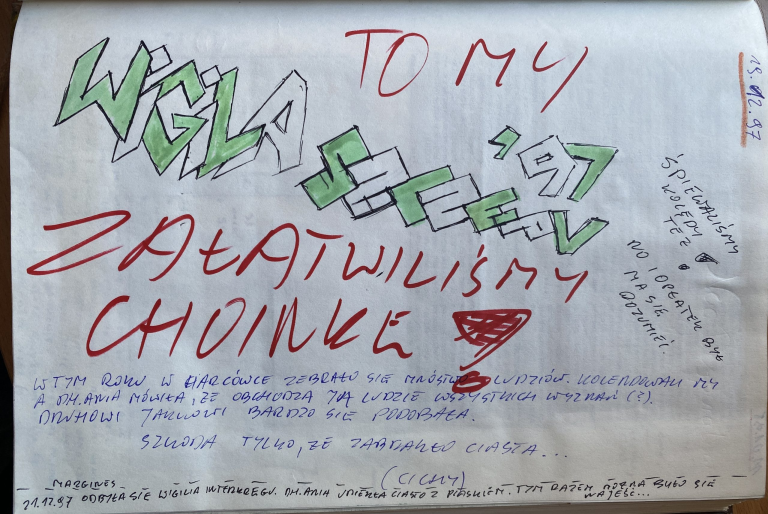 TO MY
19.12.97
WIGILIA
SZCZEPU '97
ZAŁATWILIŚMY
CHOINKĘ!
ŚPIEWALIŚMY
KOLĘDY
TEŻ.
NO I OPŁATEK BYŁ
MA SIĘ
ROZUMIEĆ.
W TYM ROKU W HARCÓWCE ZEBRAŁO SIĘ MNÓSTWO LUDZIÓW. KOLENDOWALIŚMY
A DH. ANIA MÓWIŁA, ŻE OBCHODZĄ JĄ LUDZIE WSZYSTKICH WYZNAŃ (?).
DRUHOWI JAKUOWI BARDZO SIĘ PODOBAŁA.
SZKODA TYLKO, ŻE ZABRAKŁO CIASTA...
(CICHY)
MARGINES
21.12.97 ODBYŁA SIĘ WIGILIA INTERKRĘGU. DH. ANIA UPIEKŁA CIASTO Z PIASKIEM. TYM RAZEM MOŻNA BYŁO SIĘ
NAJEŚĆ...